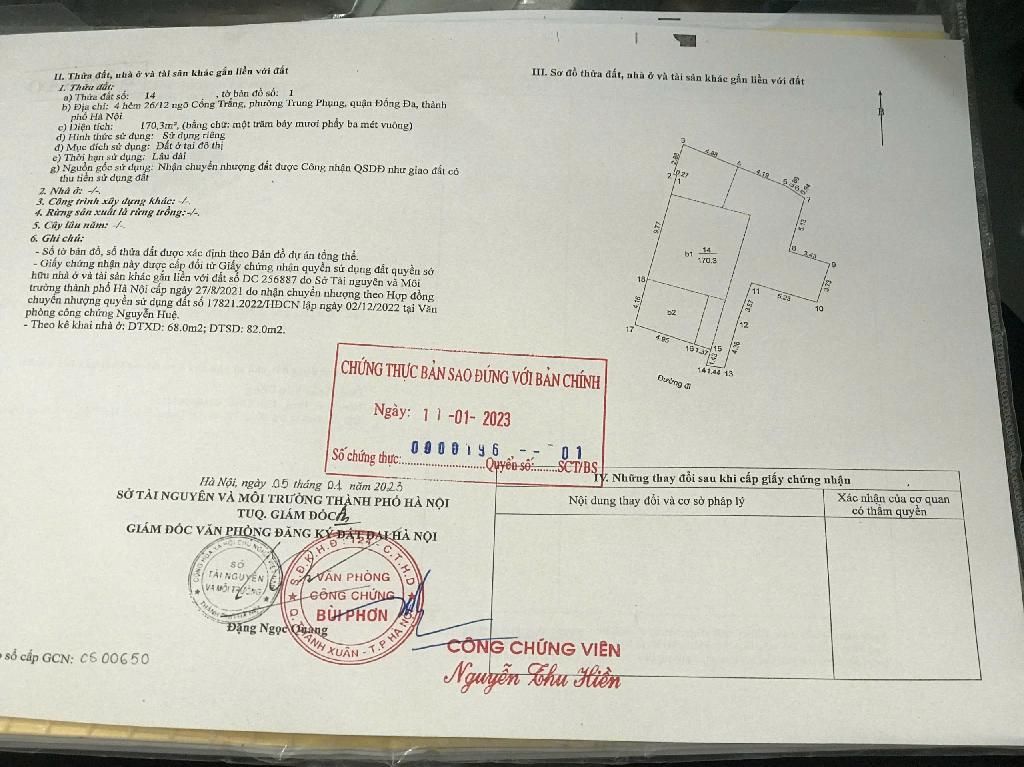 II. Thửa đất, nhà ở và tài sản khác gắn liền với đất
1. Thửa đất:
a) Thửa đất số: 14 , tờ bản đồ số: 1
b) Địa chỉ: 4 hẻm 26/12 ngõ Cống Trắng, phường Trung Phụng, quận Đống Đa, thành
phố Hà Nội
c) Diện tích: 170,3m², (bằng chữ: một trăm bảy mươi phẩy ba mét vuông)
d) Hình thức sử dụng: Sử dụng riêng
đ) Mục đích sử dụng: Đất ở tại đô thị
e) Thời hạn sử dụng: Lâu dài
g) Nguồn gốc sử dụng: Nhận chuyển nhượng đất được Công nhận QSDĐ như giao đất có
thu tiền sử dụng đất
2. Nhà ở: -/-.
3. Công trình xây dựng khác: -/-.
4. Rừng sản xuất là rừng trồng:-/-.
5. Cây lâu năm: -/-.
6. Ghi chú:
- Số tờ bản đồ, số thửa đất được xác định theo Bản đồ dự án tổng thể.
- Giấy chứng nhận này được cấp đổi từ Giấy chứng nhận quyền sử dụng đất quyền sở
hữu nhà ở và tài sản khác gắn liền với đất số DC 256887 do Sở Tài nguyên và Môi
trường thành phố Hà Nội cấp ngày 27/8/2021 do nhận chuyển nhượng theo Hợp đồng
chuyển nhượng quyền sử dụng đất số 17821.2022/HĐCN lập ngày 02/12/2022 tại Văn
phòng công chứng Nguyễn Huệ.
- Theo kê khai nhà ở: DTXD: 68.0m2; DTSD: 82.0m2.
CHỨNG THỰC BẢN SAO ĐÚNG VỚI BẢN CHÍNH
Ngày: 11 -01- 2023
Số chứng thực: 0000196 -- Quyển số: 01 SCT/BS
Hà Nội, ngày 05 tháng 01 năm 2023
SỞ TÀI NGUYÊN VÀ MÔI TRƯỜNG THÀNH PHỐ HÀ NỘI
TUQ. GIÁM ĐỐC
GIÁM ĐỐC VĂN PHÒNG ĐĂNG KÝ ĐẤT ĐAI HÀ NỘI
SỞ
TÀI NGUYÊN
VÀ MÔI TRƯỜNG
VĂN PHÒNG
CÔNG CHỨNG
BÙI PHƠN
Q. THANH XUÂN - T.P HÀ NỘI
Đặng Ngọc Quang
số cấp GCN: CS 00650
CÔNG CHỨNG VIÊN
Nguyễn Thu Hiền
III. Sơ đồ thửa đất, nhà ở và tài sản khác gắn liền với đất
B
3
4.88
4.19
2.88
2
1
7
5.13
9.77
b1
14
170.3
8
3.43
9
3.73
18
11
5.25
10
3.57
4.16
b2
12
17
4.95
16
1.37
15
4.76
1.43
14
1.44
13
Đường đi
IV. Những thay đổi sau khi cấp giấy chứng nhận
Nội dung thay đổi và cơ sở pháp lý
Xác nhận của cơ quan
có thẩm quyền